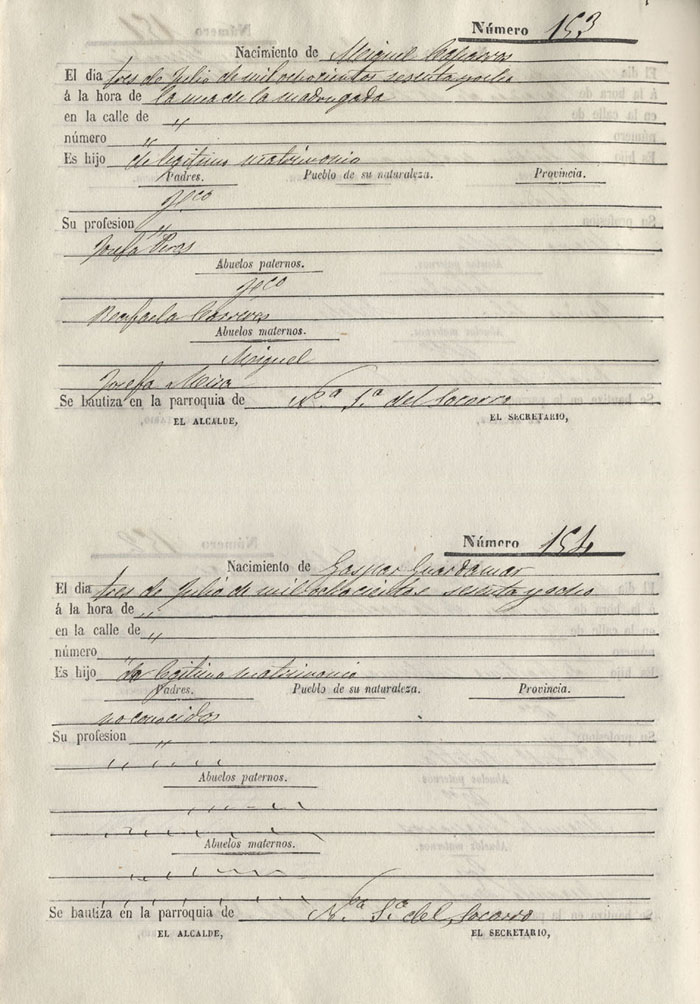 Número 153
Nacimiento de Miguel
El dia tres de Julio de mil ochocientos sesenta y ocho
á la hora de la una de la madrugada
en la calle de "
número "
Es hijo de legitimo matrimonio
Padres. Pueblo de su naturaleza. Provincia.
Fco
Su profesion "
Josefa
Abuelos paternos.
Fco
Rafaela
Abuelos maternos.
Miguel
Josefa Mira
Se bautiza en la parroquia de Nª Sª del Socorro
EL ALCALDE, EL SECRETARIO,
Número 154
Nacimiento de Gaspar Guardamar
El dia tres de Julio de mil ochocientos sesenta y ocho
á la hora de "
en la calle de "
número "
Es hijo de legitimo matrimonio
Padres. Pueblo de su naturaleza. Provincia.
no conocidos
Su profesion "
Abuelos paternos.
Abuelos maternos.
Se bautiza en la parroquia de Nª Sª del Socorro
EL ALCALDE, EL SECRETARIO,